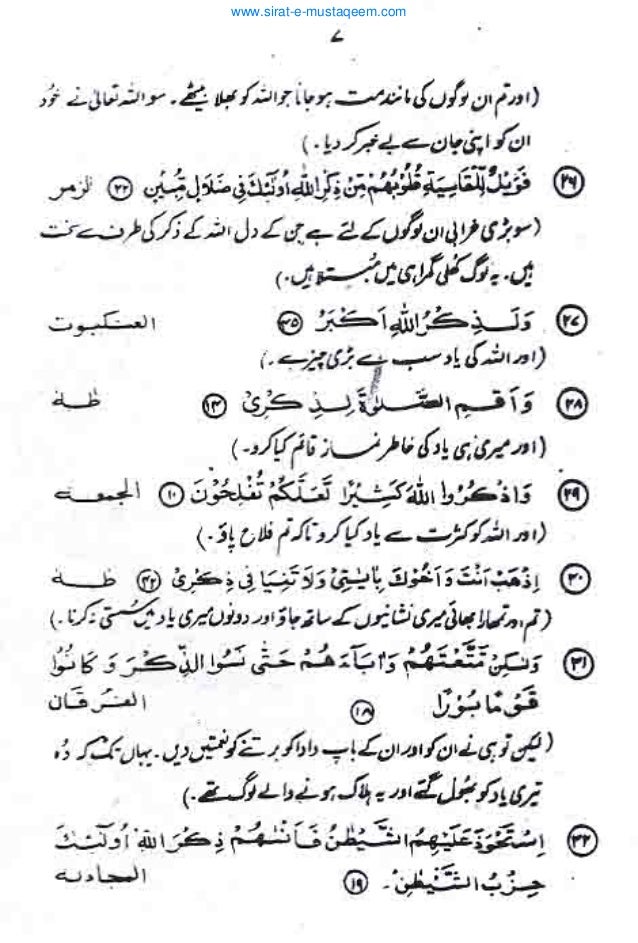 www.sirat-e-mustaqeem.com
۷
(اور تم ان لوگوں کی مانند مت ہو جانا جو اللہ کو بھلا بیٹھے۔ سو اللہ تعالیٰ نے خود
ان کو اپنی جان سے بے خبر کر دیا۔)
(۲۶) فَوَيْلٌ لِّلْقَاسِيَةِ قُلُوْبُهُمْ مِنْ ذِكْرِ اللهِ أُولٰٓئِكَ فِىْ ضَلَالٍ مُّبِيْنٍ (۲۲) لزمر
(سو بڑی خرابی ان لوگوں کے لئے ہے جن کے دل اللہ کے ذکر کی طرف سے سخت
ہیں۔ یہ لوگ کھلی گمراہی میں مُبتلا ہیں۔)
(۲۷) وَلَذِكْرُ اللهِ اَكْبَرُ (۴۵) العنکبوت
(اور اللہ کی یاد سب سے بڑی چیز ہے۔)
(۲۸) وَاَقِمِ الصَّلٰوةَ لِذِكْرِىْ (۱۴) طٰهٰ
(اور میری ہی یاد کی خاطر نماز قائم کیا کرو۔)
(۲۹) وَاذْكُرُوا اللهَ كَثِيْرًا لَّعَلَّكُمْ تُفْلِحُوْنَ (۱۰) الجمعه
(اور اللہ کو کثرت سے یاد کیا کرو تاکہ تم فلاح پاؤ۔)
(۳۰) اِذْهَبْ اَنْتَ وَاَخُوْكَ بِاٰيٰتِىْ وَلَا تَنِيَا فِىْ ذِكْرِىْ (۴۲) طٰه
(تم اور تمہارا بھائی میری نشانیوں کے ساتھ جاؤ اور دونوں میری یاد میں سستی نہ کرنا۔)
(۳۱) وَلٰكِنْ مَّتَّعْتَهُمْ وَاٰبَآءَهُمْ حَتّٰى نَسُوا الذِّكْرَ وَكَانُوْا
قَوْمًا بُوْرًا (۱۸) الفرقان
(لیکن تو ہی نے ان کو اور ان کے باپ دادا کو برتنے کو نعمتیں دیں۔ یہاں تک کہ وہ
تیری یاد کو بھول گئے اور یہ ہلاک ہونے والے لوگ تھے۔)
(۳۲) اِسْتَحْوَذَ عَلَيْهِمُ الشَّيْطٰنُ فَاَنْسٰهُمْ ذِكْرَ اللهِ اُولٰٓئِكَ
حِزْبُ الشَّيْطٰنِ۔ (۱۹) المجادله